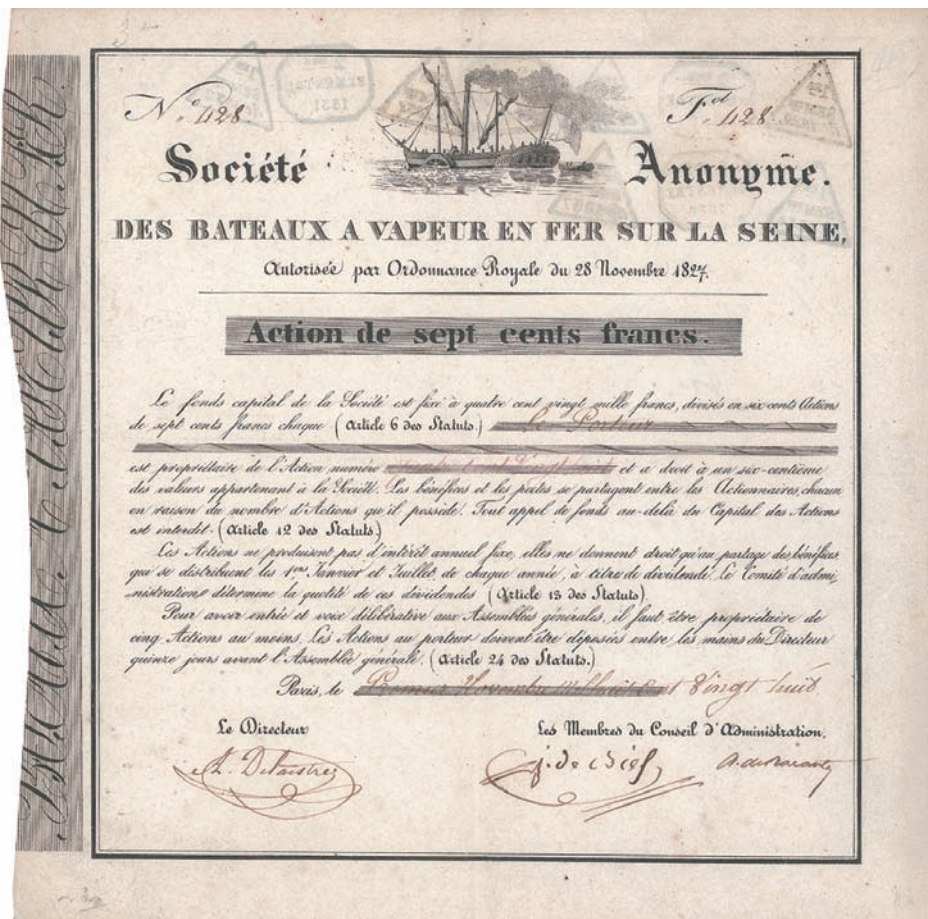 N.º 428
F.º 428
Société Anonyme.
DES BATEAUX A VAPEUR EN FER SUR LA SEINE,
Autorisée par Ordonnance Royale du 28 Novembre 1827.
Action de sept cents francs.
Le fonds capital de la Société est fixé à quatre cent vingt mille francs, divisés en six cents Actions
de sept cents francs chaque (Article 6 des Statuts.) Le Porteur
est propriétaire de l'Action numéro quatre Cent Vingt huit et a droit à un six-centième
des valeurs appartenant à la Société. Les bénéfices et les pertes se partagent entre les Actionnaires, chacun
en raison du nombre d'Actions qu'il possède. Tout appel de fonds au-delà du Capital des Actions
est interdit. (Article 12 des Statuts.)
Les Actions ne produisent pas d'intérêt annuel fixe, elles ne donnent droit qu'au partage des bénéfices
qui se distribuent les 1ers Janvier et Juillet de chaque année, à titre de dividende. Le Comité d'admi
nistration détermine la quotité de ces dividendes (Article 13 des Statuts).
Pour avoir entrée et voix délibérative aux Assemblées générales, il faut être propriétaire de
cinq Actions au moins. Les Actions au porteur doivent être déposées entre les mains du Directeur
quinze jours avant l'Assemblée générale. (Article 24 des Statuts.)
Paris, le Premier Novembre Mil huit Cent Vingt huit
Le Directeur
Les Membres du Conseil d'Administration.